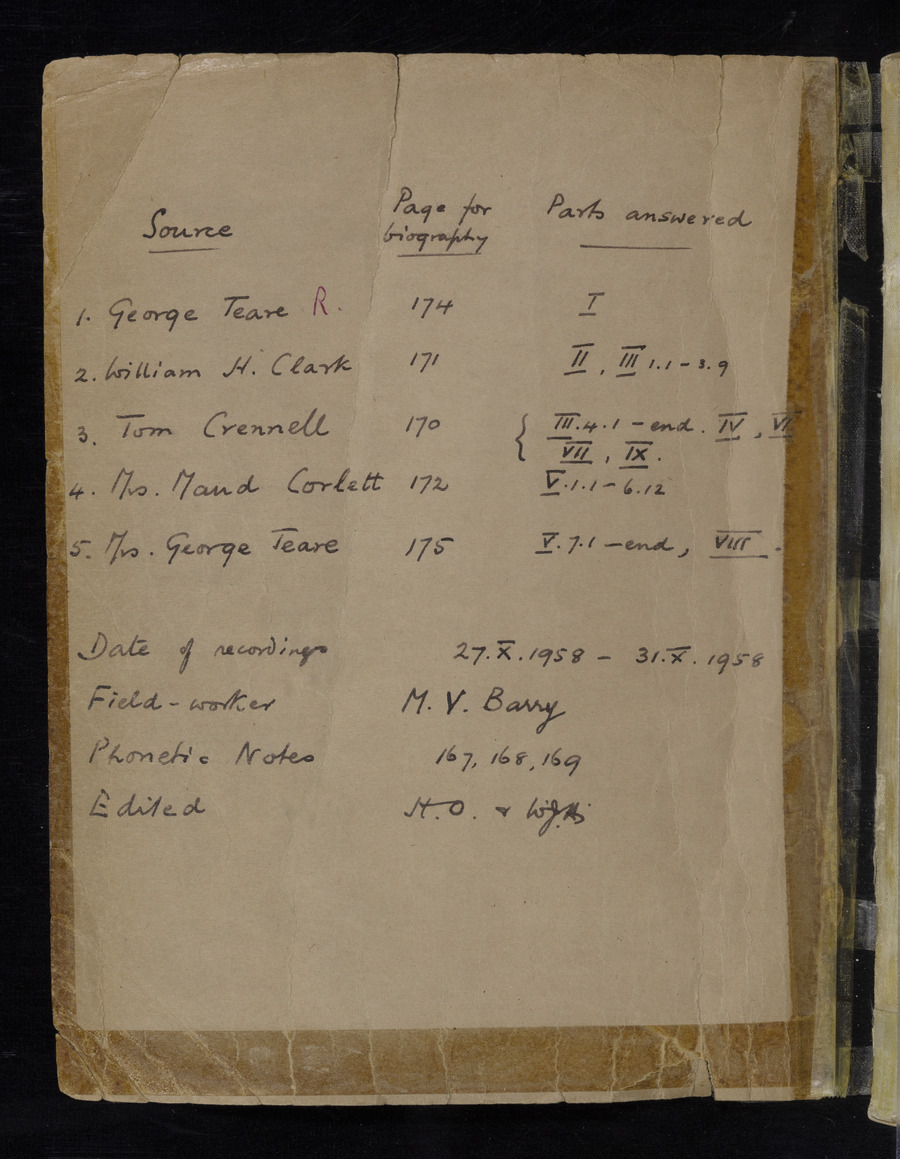 Source Page for biography Parts answered
1. George Teare R. 174 I
2. William H. Clark 171 II, III 1.1 - 3.9
3. Tom Crennell 170 { III.4.1 - end. IV, VI
VII, IX.
4. Mrs. Maud Corlett 172 V.1.1 - 6.12
5. Mrs. George Teare 175 V.7.1 - end, VIII.
Date of recordings 27.X.1958 - 31.X.1958
Field-worker M. V. Barry
Phonetic Notes 167, 168, 169
Edited H.O. &